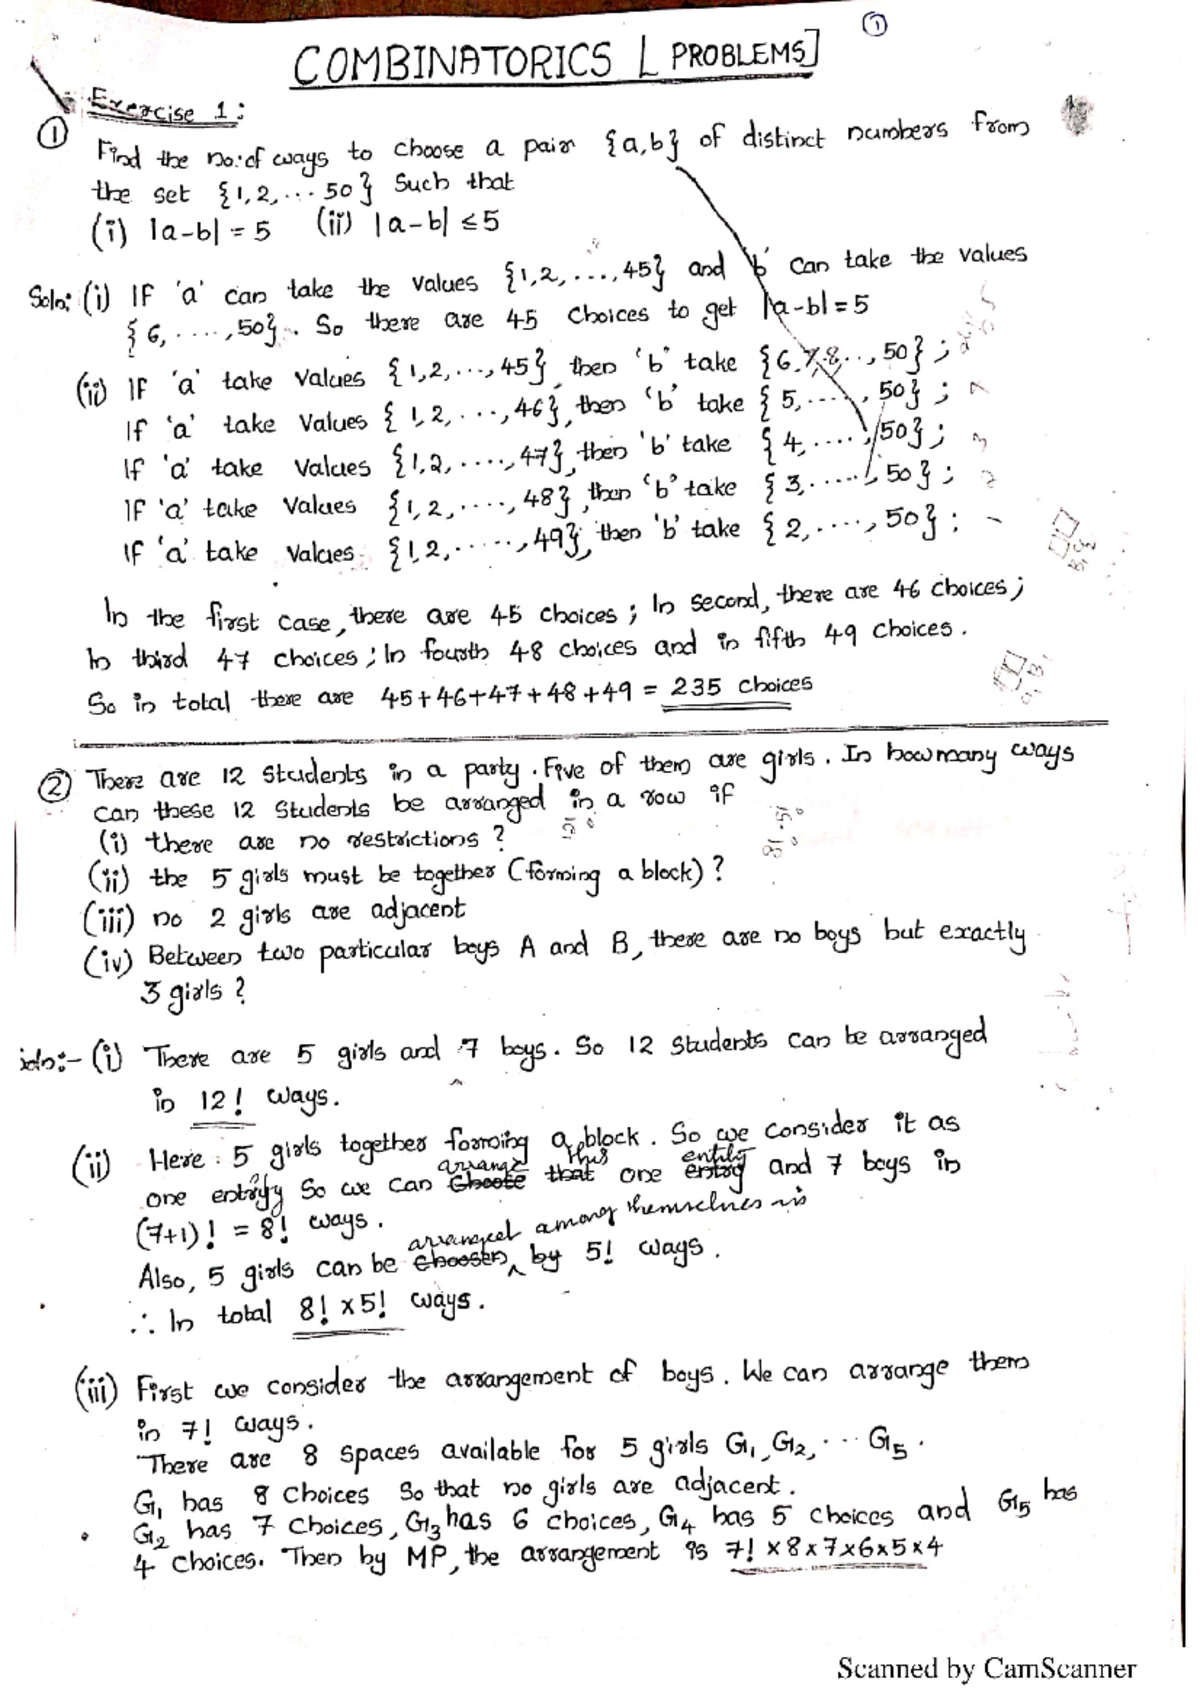 ①
COMBINATORICS [PROBLEMS]
Exercise 1:
① Find the no: of ways to choose a pair {a,b} of distinct numbers from
the set {1,2,...50} Such that
(i) |a-b| = 5 (ii) |a-b| ≤ 5
Soln: (i) IF 'a' can take the values {1,2,...,45} and 'b' can take the values
{6,....,50}. So there are 45 choices to get |a-b| = 5
(ii) IF 'a' take values {1,2,...,45} then 'b' take {6,7,8,..,50};
If 'a' take values {1,2,...,46}, then 'b' take {5,....,50};
If 'a' take values {1,2,....,47}, then 'b' take {4,....,50};
IF 'a' take values {1,2,....,48}, then 'b' take {3,.....,50};
If 'a' take values {1,2,.....,49}, then 'b' take {2,....,50};
In the first case, there are 45 choices; In second, there are 46 choices;
In third 47 choices; In fourth 48 choices and in fifth 49 choices.
So in total there are 45+46+47+48+49 = 235 choices
② There are 12 students in a party. Five of them are girls. In how many ways
can these 12 students be arranged in a row if
(i) there are no restrictions?
(ii) the 5 girls must be together (forming a block)?
(iii) no 2 girls are adjacent
(iv) Between two particular boys A and B, there are no boys but exactly
3 girls?
soln:- (i) There are 5 girls and 7 boys. So 12 students can be arranged
in 12! ways.
(ii) Here 5 girls together forming a block. So we consider it as
arrange this entity
one entity So we can choose that one entry and 7 boys in
(7+1)! = 8! ways.
arranged among themselves in
Also, 5 girls can be choosen by 5! ways.
∴ In total 8! x 5! ways.
(iii) First we consider the arrangement of boys. We can arrange them
in 7! ways.
There are 8 spaces available for 5 girls G₁, G₂, ... G₅.
G₁ has 8 choices so that no girls are adjacent.
G₂ has 7 choices, G₃ has 6 choices, G₄ has 5 choices and G₅ has
4 choices. Then by MP, the arrangement is 7! x 8 x 7 x 6 x 5 x 4
Scanned by CamScanner